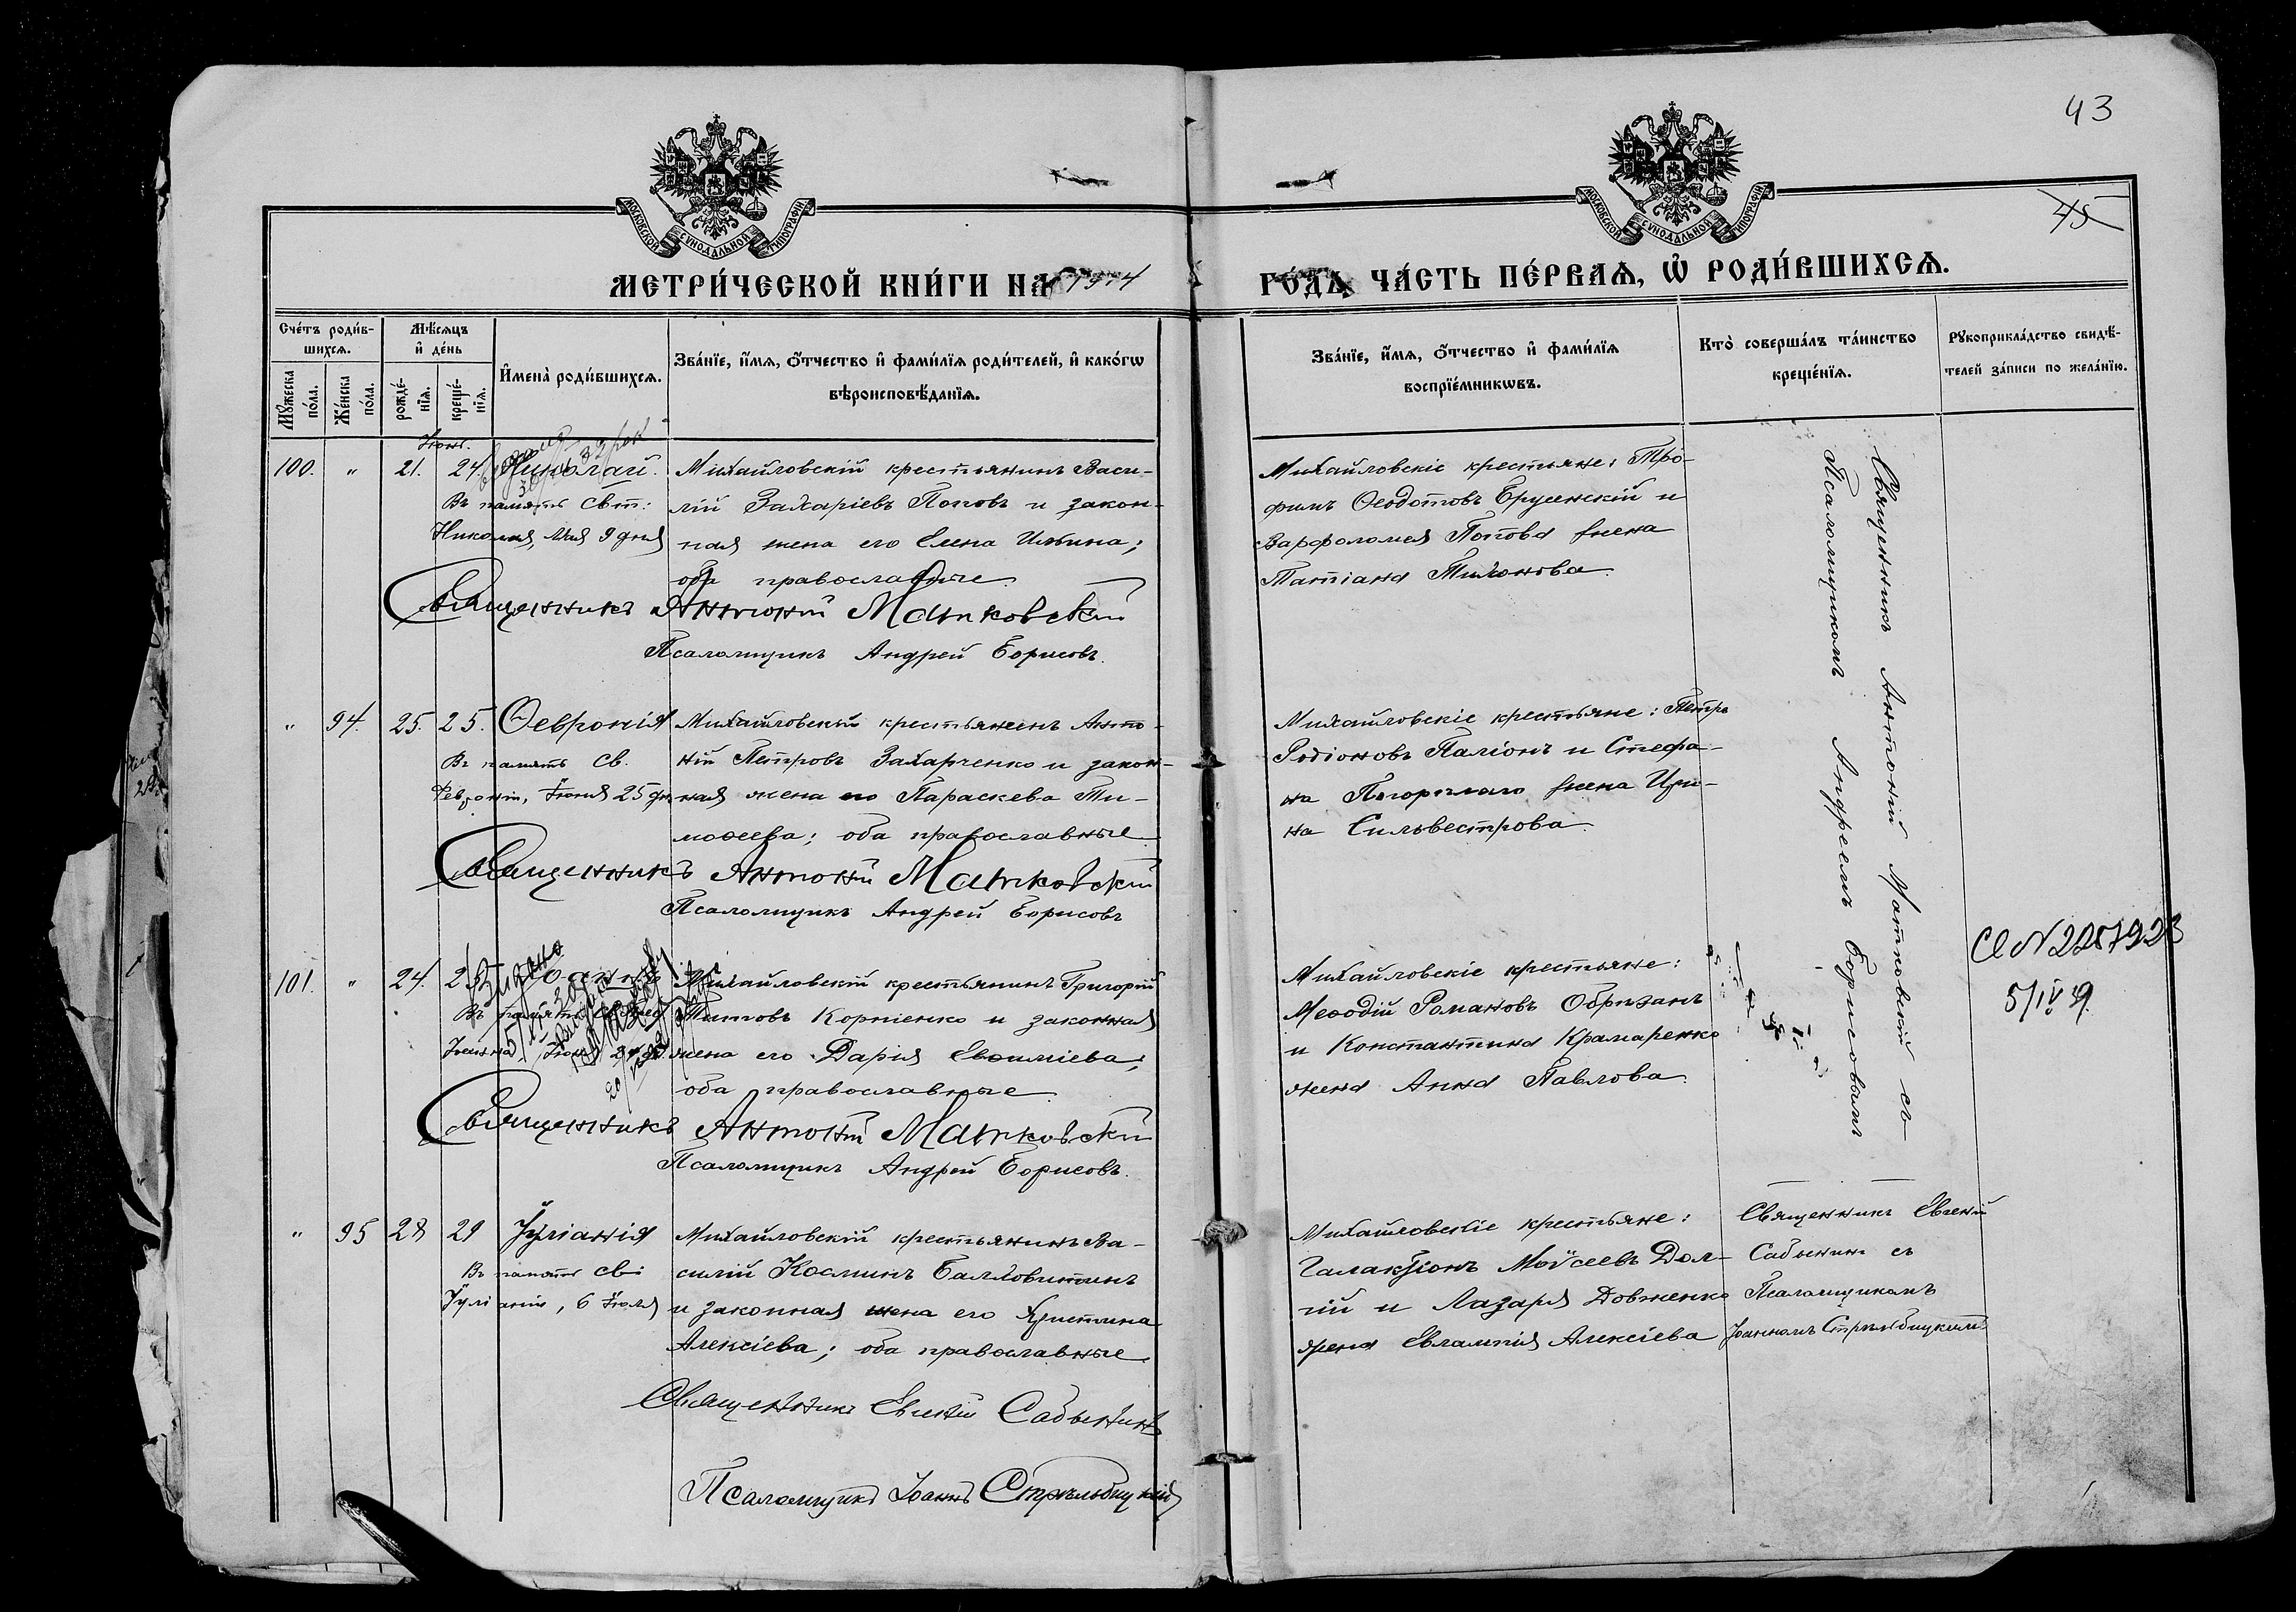 43
45
МОСКОВСКОЙ СУНОДАЛЬНОЙ ТИПОГРАФІИ
МОСКОВСКОЙ СУНОДАЛЬНОЙ ТИПОГРАФІИ
МЕТРИ́ЧЕСКОЙ КНИ́ГИ НА 1914 ГО́ДЪ, ЧА́СТЬ ПЕ́РВАѦ, Ѡ҆ РОДИ́ВШИХСѦ.
Сче́тъ роди́в-
шихсѧ.
Мꙋ́жеска по́ла.
Же́нска по́ла.
Мѣ́сѧцъ
и҆ де́нь
рожде́-
нїѧ.
креще́-
нїѧ.
И҆мена̀ роди́вшихсѧ.
Зва́нїе, и҆́мѧ, ѻ҆́тчество и҆ фами́лїѧ роди́телей, и҆ како́гѡ
вѣроисповѣ́данїѧ.
Зва́нїе, и҆́мѧ, ѻ҆́тчество и҆ фами́лїѧ
воспрїе́мникѡвъ.
Кто̀ соверша́лъ та́инство
креще́нїѧ.
Рꙋкоприкла́дство свидѣ́-
телей за́писи по жела́нїю.
Іюнь.
100. " 21. 24. Николай.
Въ память Свт:
Николая, Мая 9 дня
Михайловскій крестьянинъ Васи-
лій Захаріевъ Поповъ и закон-
ная жена его Елена Ильина;
оба православные.
Священникъ Антоній Матковскій
Псаломщикъ Андрей Борисовъ.
Михайловскіе крестьяне: Тро-
фимъ Ѳеодотовъ Брусенскій и
Варфоломея Попова жена
Татіана Тихонова.
Священникъ Антоній Матковскій съ
Псаломщикомъ Андреемъ Борисовымъ
" 94. 25. 25. Ѳевронія
Въ память Св.
Февроніи, Іюня 25 дн
Михайловскій крестьянинъ Анто-
ній Петровъ Захарченко и закон-
ная жена его Параскева Ти-
моѳеева; оба православные.
Священникъ Антоній Матковскій
Псаломщикъ Андрей Борисовъ
Михайловскіе крестьяне: Петръ
Родіоновъ Паліонъ и Стефа-
на жена Ири-
на Сильвестрова.
101. " 24.
Въ память
Михайловскій крестьянинъ Григорій
Титовъ Корніенко и законная
жена его Дарія Евѳиміева;
оба православные.
Священникъ Антоній Матковскій
Псаломщикъ Андрей Борисовъ.
Михайловскіе крестьяне:
Меѳодій Романовъ Обризанъ
и Константина Крамаренко
жена Анна Павлова.
CЮ N 2257923
5/IV 49.
" 95 28 29 Іуліанія
Въ память Св:
Іуліаніи, 6 Іюля
Михайловскій крестьянинъ Ва-
силій Косминъ Балховитинъ
и законная жена его Христина
Алексіева; оба православные.
Священникъ Евгеній Сабынинъ
Псаломщикъ Іоаннъ Стрѣльбицкій
Михайловскіе крестьяне:
Галактіонъ Моѵсеевъ Дол-
гій и Лазаря Довженко
жена Евлампія Алексіева
Священникъ Евгеній
Сабынинъ съ
Псаломщикомъ
Іоанномъ Стрѣльбицкимъ